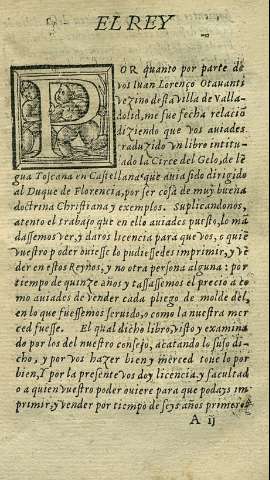 EL REY
POR quanto por parte de
vos Iuan Lorenço Otauanti
vezino desta villa de Valla-
dolid, me fue fecha relaciõ
diziendo que vos auiades
traduzido vn libro intitu-
lado la Circe del Gelo, de lẽ
gua Toscana en Castellana que auia sido dirigido
al Duque de Florencia, por ser cosa de muy buena
doctrina Christiana y exemplos. Suplicandonos,
atento el trabajo que en ello auiades puesto, lo mã
dassemos ver, y daros licencia para que vos, o quiẽ
vuestro poder ouiesse lo pudiessedes imprimir, y vẽ
der en estos Reynos, y no otra persona alguna: por
tiempo de quinze años y tassassemos el precio a co
mo auiades de vender cada pliego de molde dèl,
en lo que fuessemos seruido, o como la nuestra mer
ced fuesse. El qual dicho libro, visto y examina
do por los del nuestro consejo, acatando lo suso di-
cho, y por vos hazer bien y merced tuue lo por
bien, Y por la presente vos doy licencia y facultad
o a quien vuestro poder ouiere para que podays im
primir, y vender por tiempo de seys años primeros
A ij